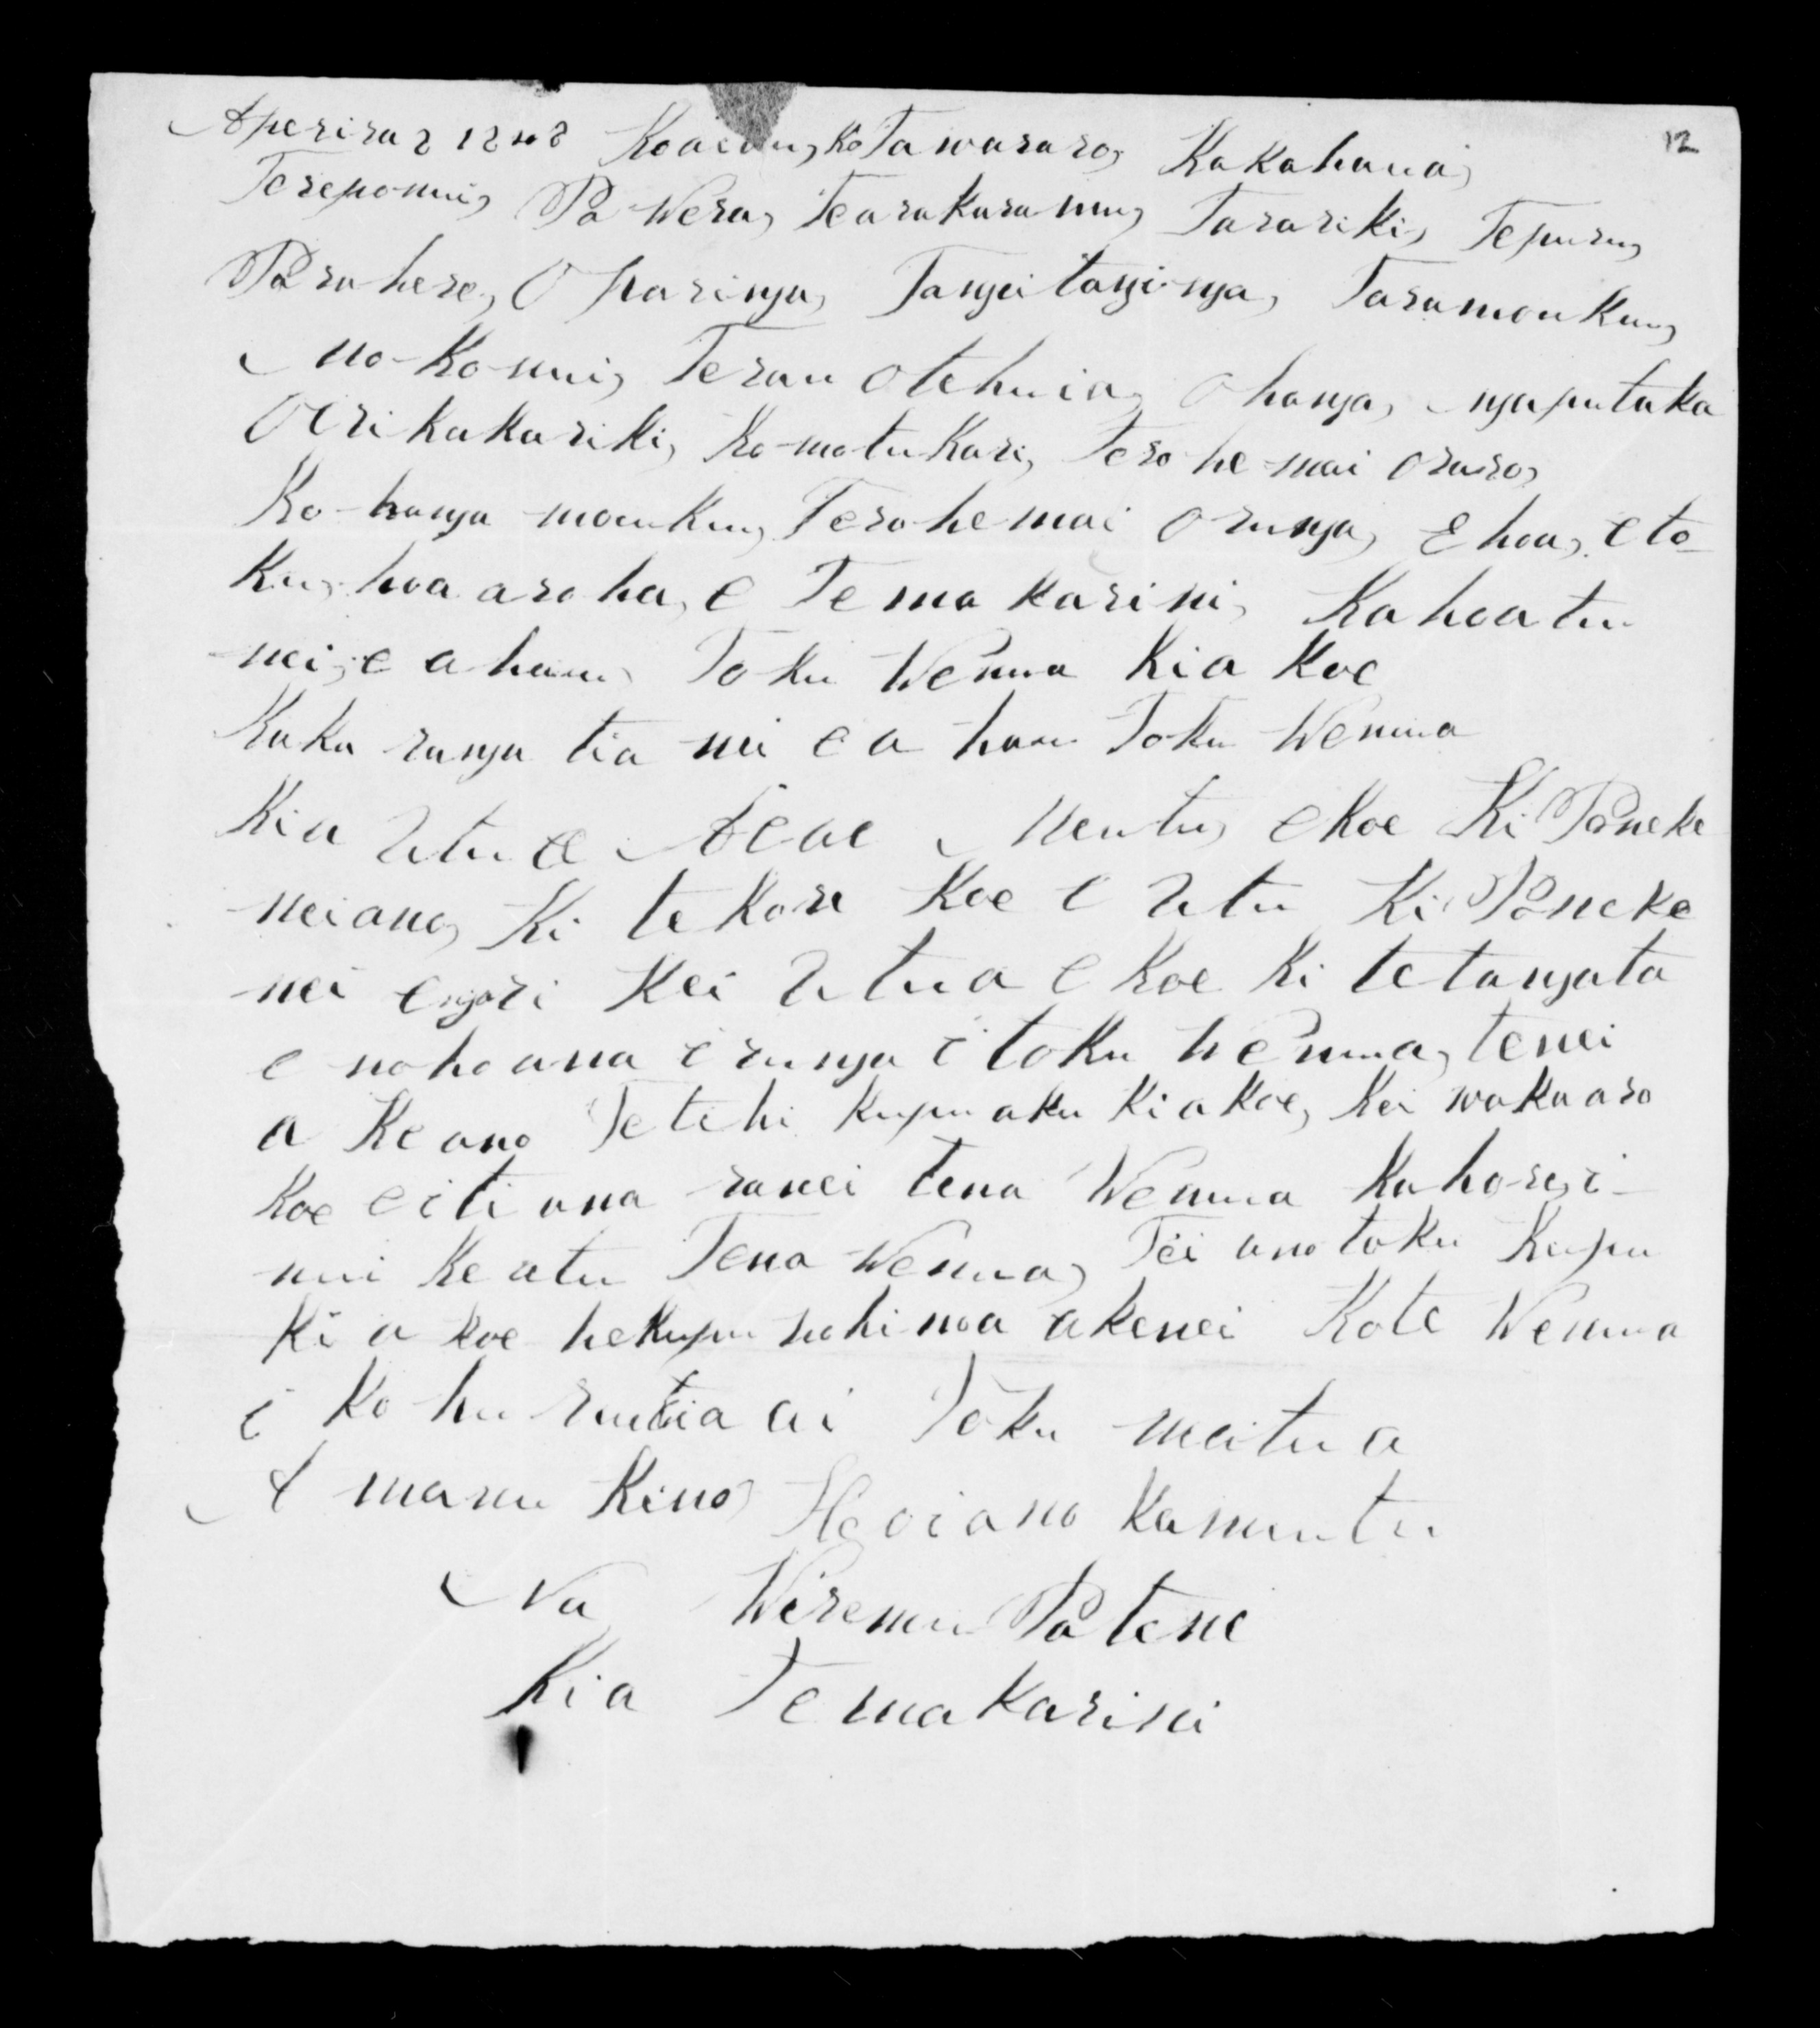 12
Aperira 2 1848 Kotawararo, Kakahanui,
Terepomui, Pa Wera, Tearakuramu, Tarariki, Tepuru,
Paruhere, O Paringa, Tangitanginga, Taramouku,
Mokomui, Terau otehuia, Ohanga, ngaputaka
Oerikakariki, Ko-motu Kari, Terohe mai oraro,
Ko-hanga mouku, Terohe mai orunga, E hoa, e to-
ku, hoa aroha, e Te makarini, Ka hoatu
nei, e ahau, Toku Wenua Kia Koe
Kaka ranga tia nei e a hau Toku Wenua
Kia Utu e Aeae Mentu, e Koe Ki Poneke
neiano, Ki tekore Koe e Utu Ki Poneke
nei engari Kei Utua e Koe Ki te tangata
e noho ana i runga i toku Wenua, tenei
a Ke ano Tetehi Kupu aku Kiakoe, Kei wakaaro
Koe eiti ana ranei tena Wenua Kahore, i-
nui Ke atu Tena Wenua, Tei ano toku Kupu
Ki a koe hekupu nohinoa akenei Kote Wenua
i Ko hurutia ai Toku matua
A maru Kino, Heoiano Kamutu
Na Wiremu Patene
Kia Temakarini